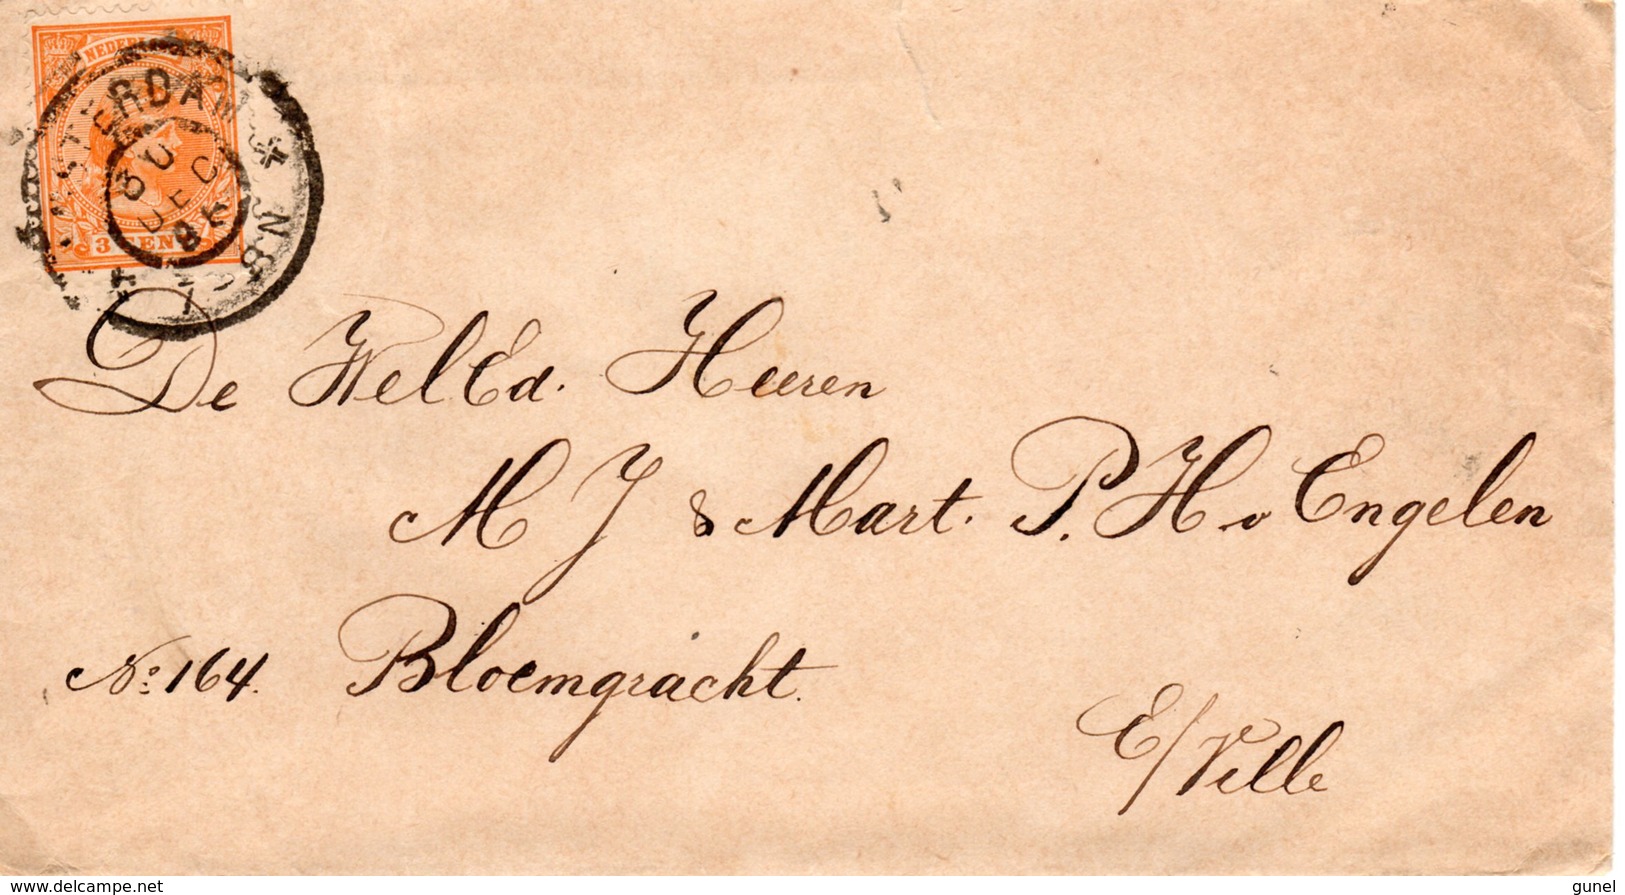 NEDERL
3 CENT
AMSTERDAM
30
DEC
7-8N
De WelEd. Heeren
M J & Mart. P. H v Engelen
No: 164. Bloemgracht.
E/Ville
www.delcampe.net
gunel